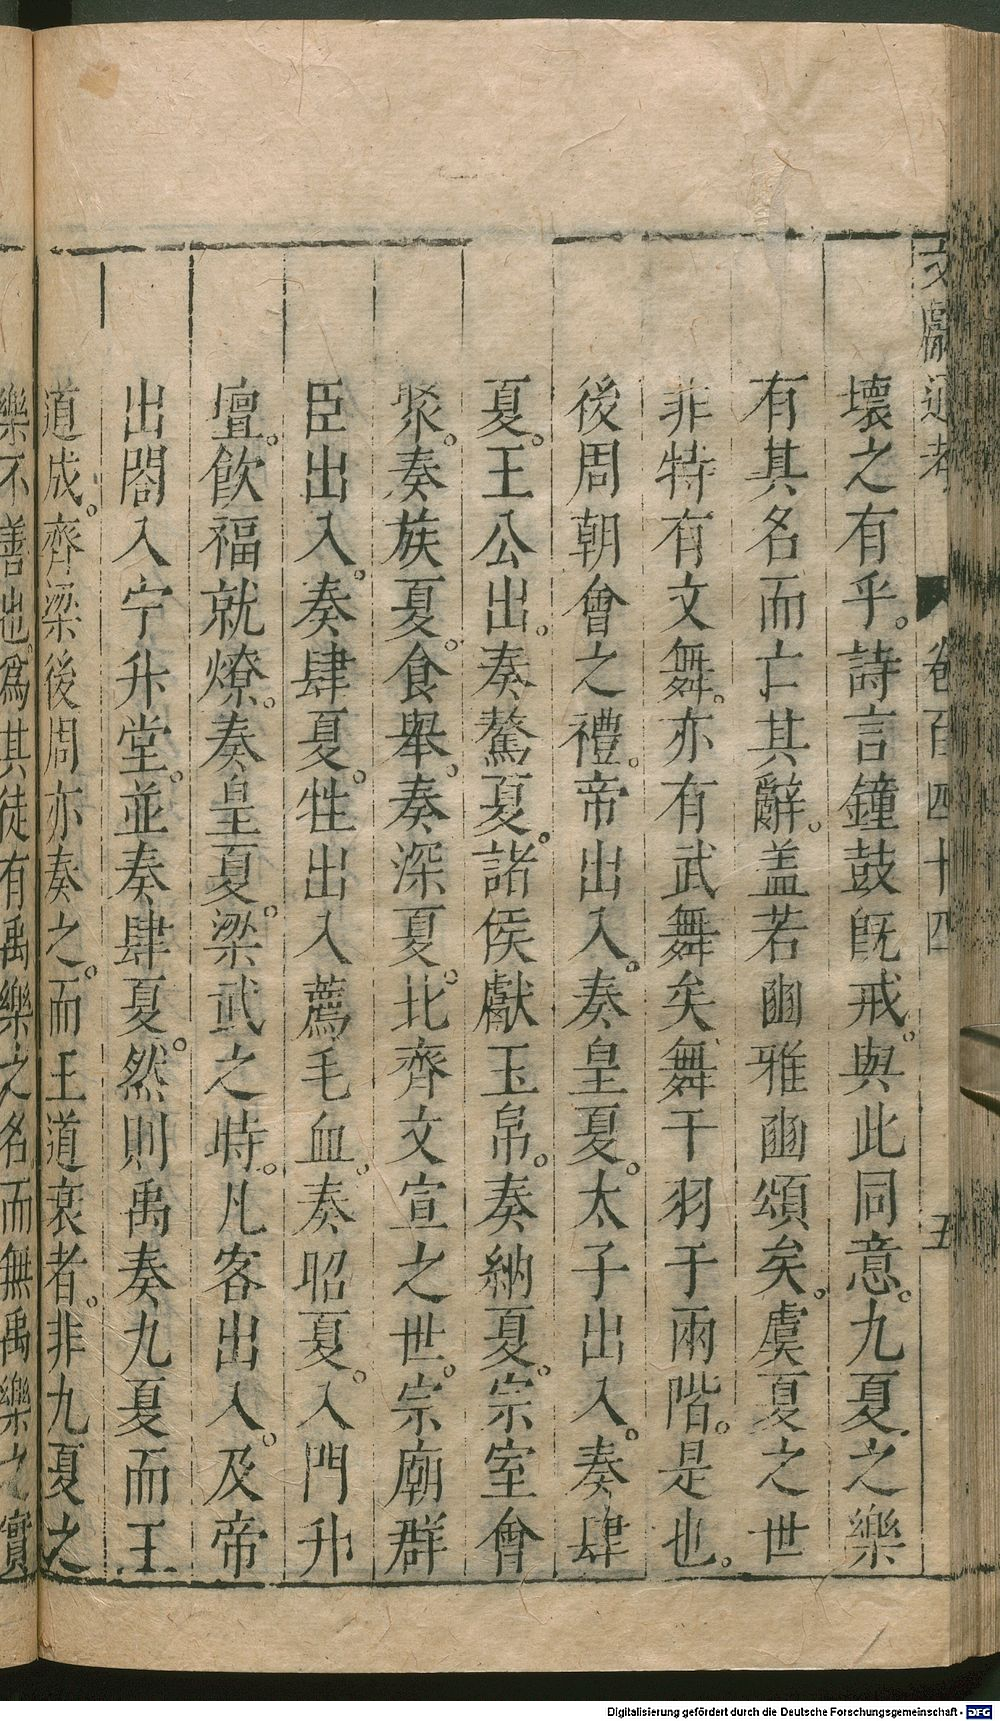 文獻通考 卷百四十四 五
壞之有乎。詩言鐘鼓既戒。與此同意。九夏之樂
有其名而亡其辭。盖若豳雅豳頌矣。虞夏之世
非特有文舞。亦有武舞矣舞干羽于兩階。是也。
後周朝會之禮。帝出入。奏皇夏。太子出入。奏肆
夏。王公出。奏驁夏。諸侯獻玉帛。奏納夏。宗室會
聚。奏族夏。食舉。奏深夏。北齊文宣之世。宗廟群
臣出入。奏肆夏。牲出入薦毛血。奏昭夏。入門升
壇。飲福就燎。奏皇夏。梁武之時。凡客出入。及帝
出閤入宁升堂。並奏肆夏。然則禹奏九夏而王
道成。齊梁後周亦奏之。而王道衰者。非九夏之
樂不善也。爲其徒有禹樂之名而無禹樂之實
Digitalisierung gefördert durch die Deutsche Forschungsgemeinschaft - DFG